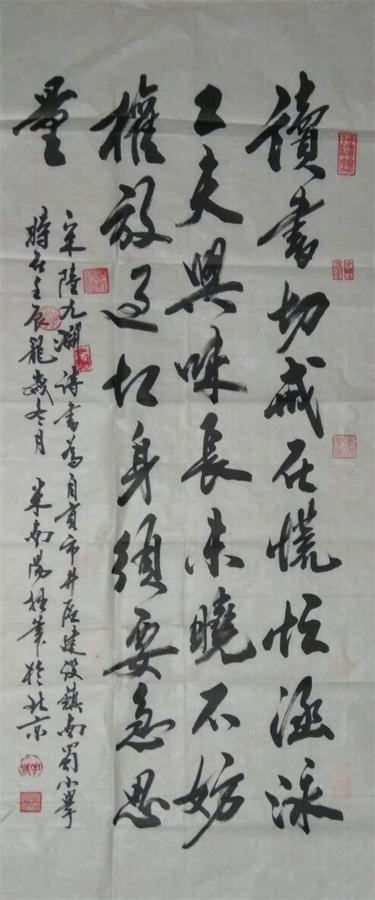 讀書切戒在慌忙涵泳
工夫興味長未曉不妨
權放過切身須要急思
量
宋陸九淵詩書為自貢市井區建设鎮南蜀小學
時在壬辰龍歲冬月 米南陽超筆於北京